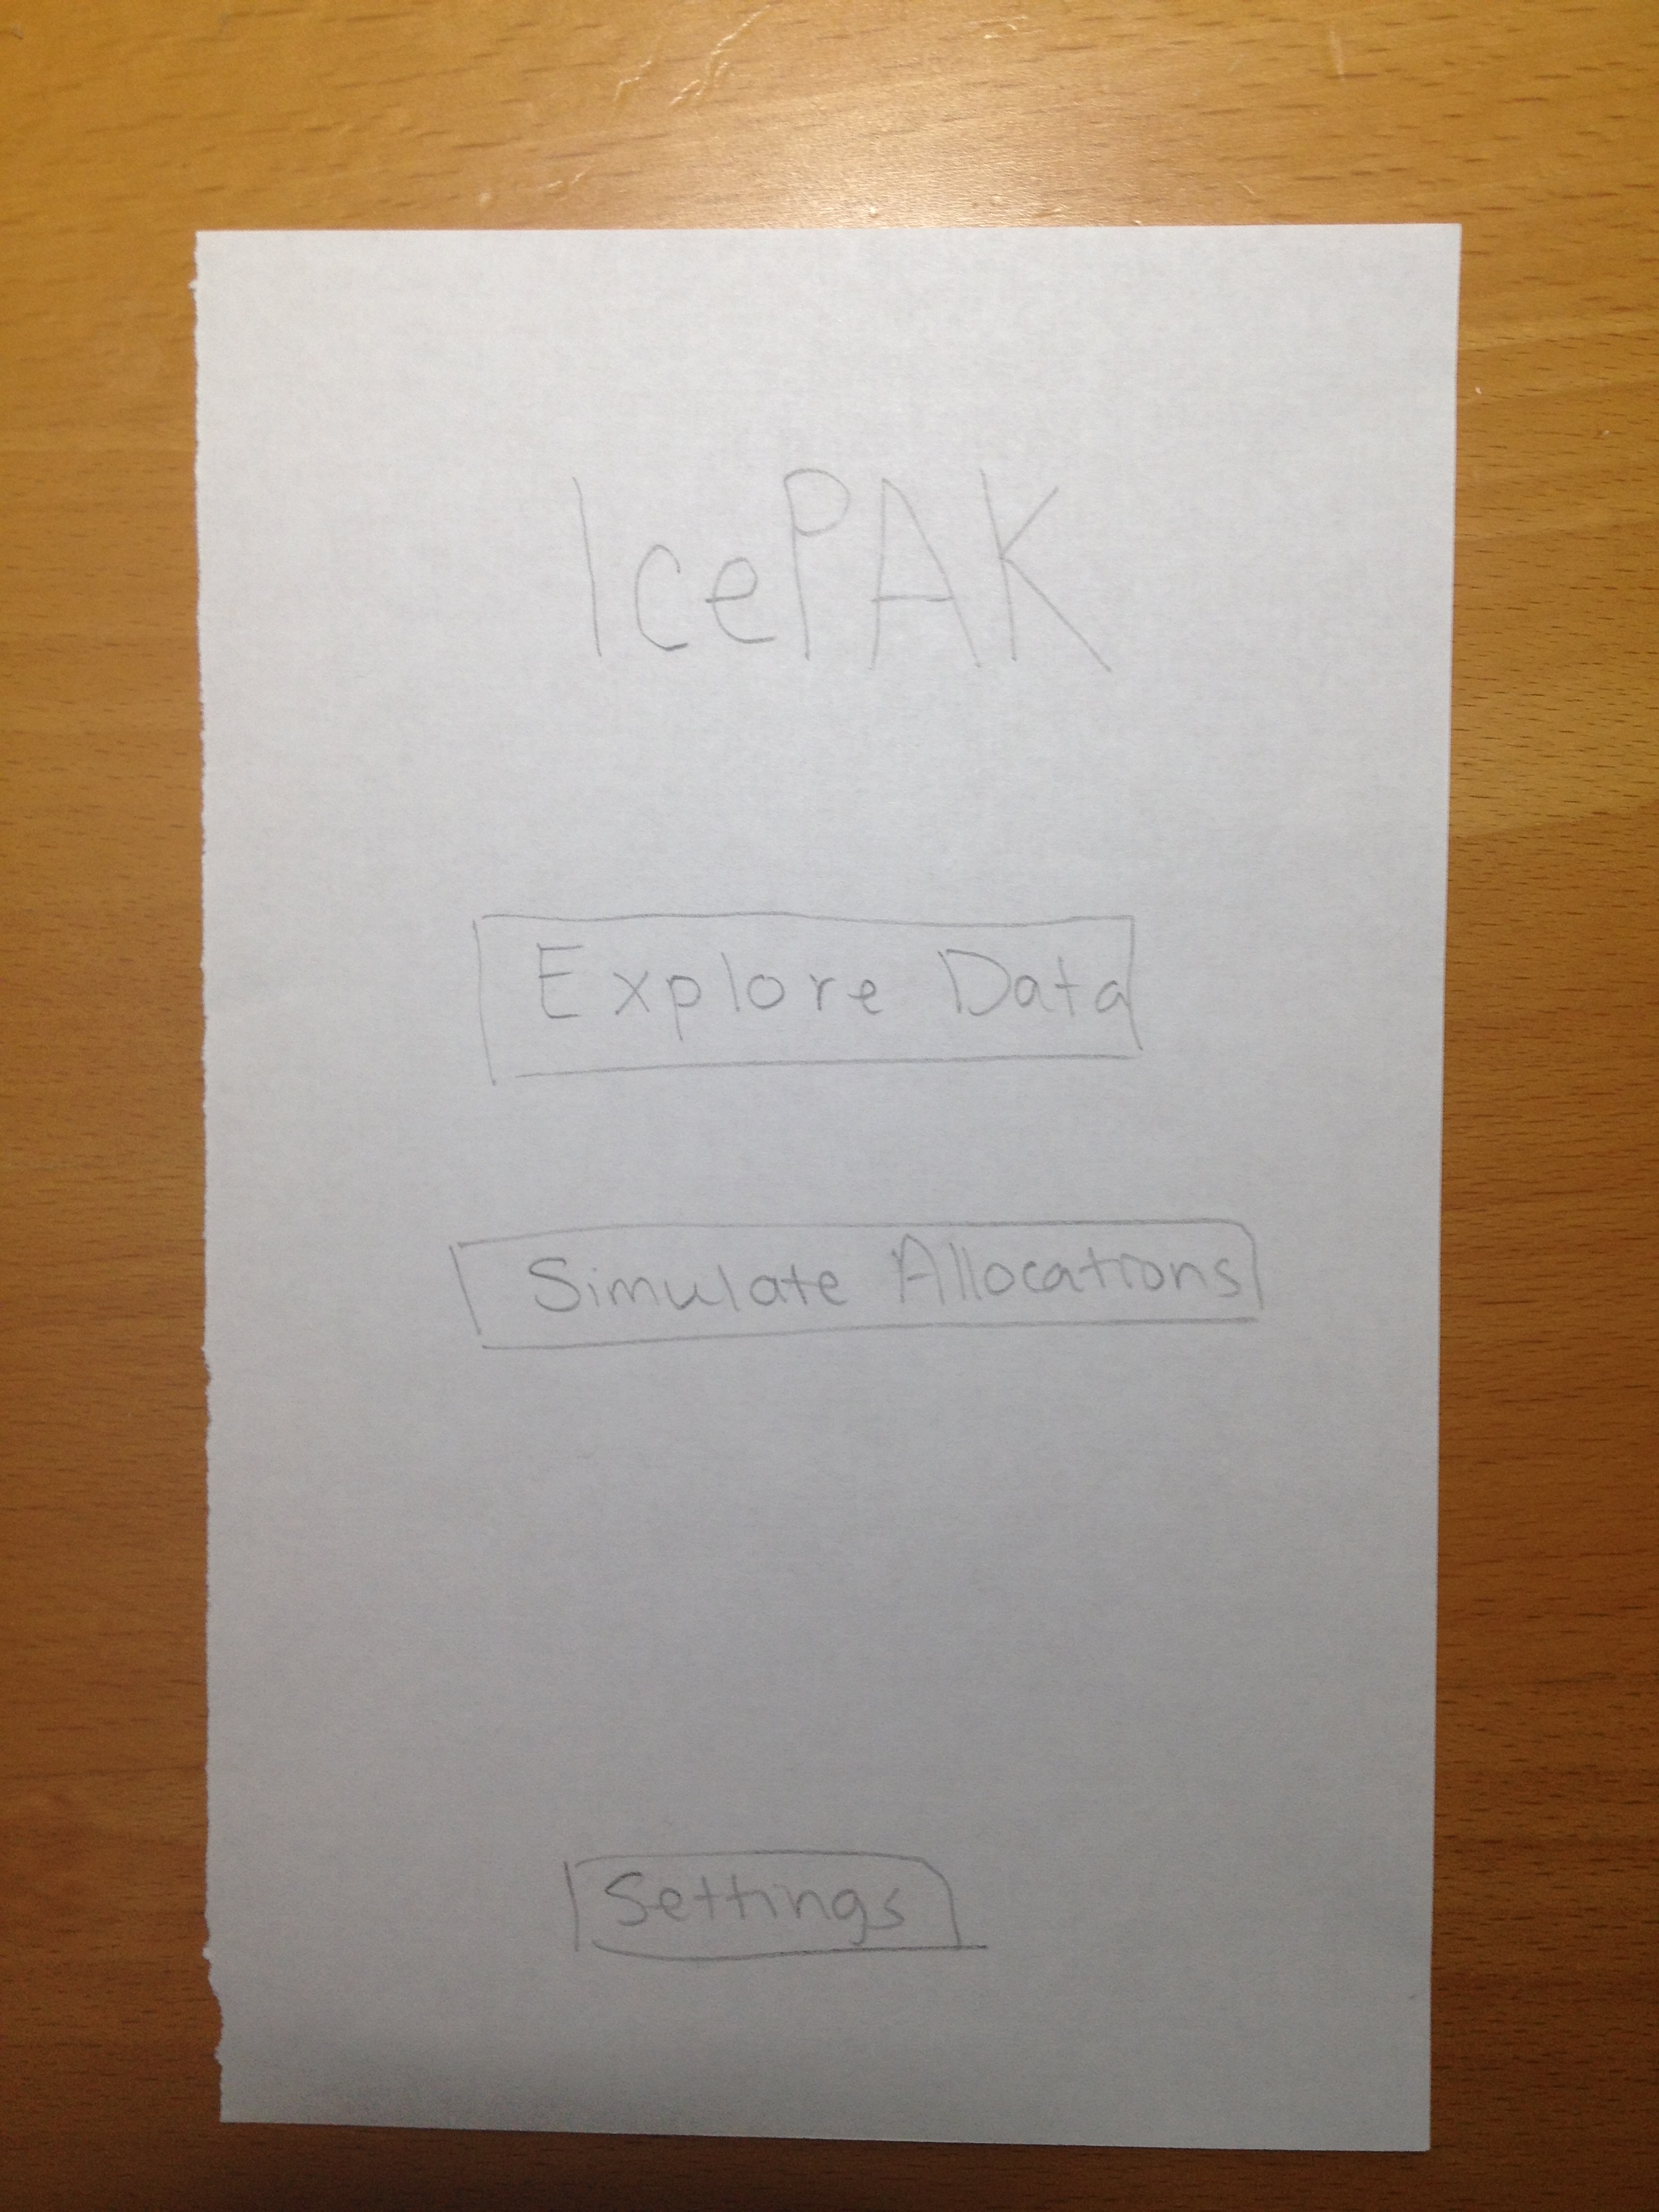 IcePAK
Explore Data
Simulate Allocations
Settings